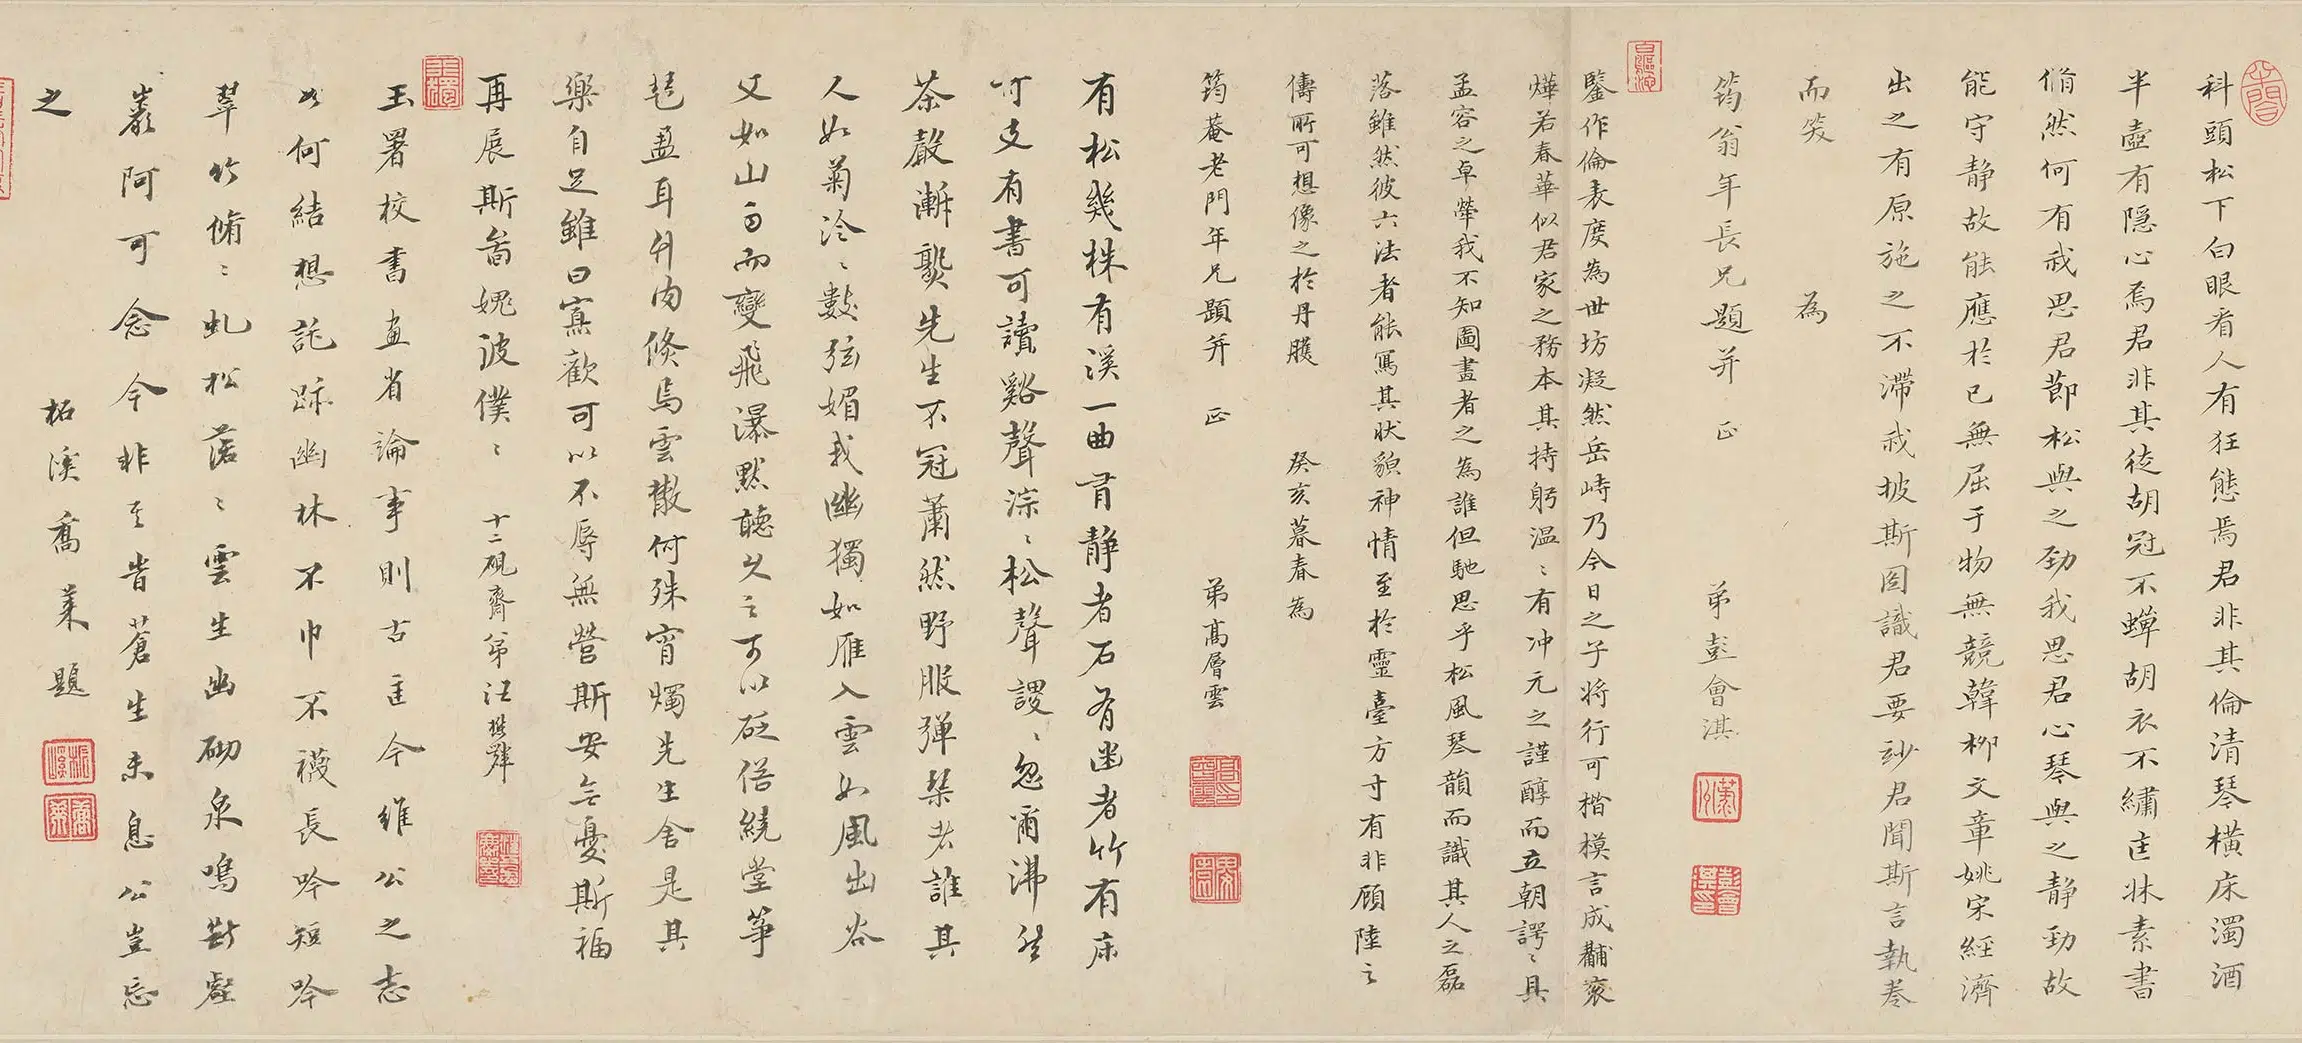 科頭松下白眼看人有狂態焉君非其倫清琴橫床濁酒
半壺有隱心焉君非其徒胡冠不蟬胡衣不繡匡牀素書
翛然何有哉思君節松與之勁我思君心琴與之靜勁故
能守靜故能應於已無屈于物無競韓柳文章姚宋經濟
出之有原施之不滯我披斯圖識君要玅君聞斯言執卷
而笑 為
筠翁年長兄題并 正 弟彭會淇
鑒作倫表度為世坊凝然岳峙乃今日之子將行可楷模言成黼袞
燁若春華似君家之務本其持躬溫〻有冲元之謹醇而立朝諤〻具
孟容之卓犖我不知圖畫者之為誰但馳思乎松風琴韻而識其人之磊
落雖然彼六法者能寫其狀貌神情至於靈臺方寸有非顧陸之
儔所可想像之於丹雘 癸亥暮春為
筠菴老門年兄題并 正 弟高層雲
有松幾株有溪一曲有靜者石有幽者竹有床
可支有書可讀谿聲淙〻松聲謖〻忽爾沸生
茶聲漸熟先生不冠蕭然野服彈琴者誰其
人如菊泠〻數弦媚我幽獨如雁入雲如風出谷
又如山雨而變飛瀑默聽久之可以砭俗繞堂箏
琶盈耳絲肉倏焉雲散何殊宵燭先生舍是其
樂自足雖曰寡歡可以不辱無營斯安無憂斯福
再展斯啚媿波僕〻 十二硯齋弟汪懋麟
玉署校書畫省論事則古匡今維公之志
如何結想託跡幽林不巾不襪長吟短吟
翠竹翛〻虬松落〻雲生幽砌泉鳴斷壑
巖阿可念今非其昔蒼生未息公豈忘
之 柘溪喬萊題